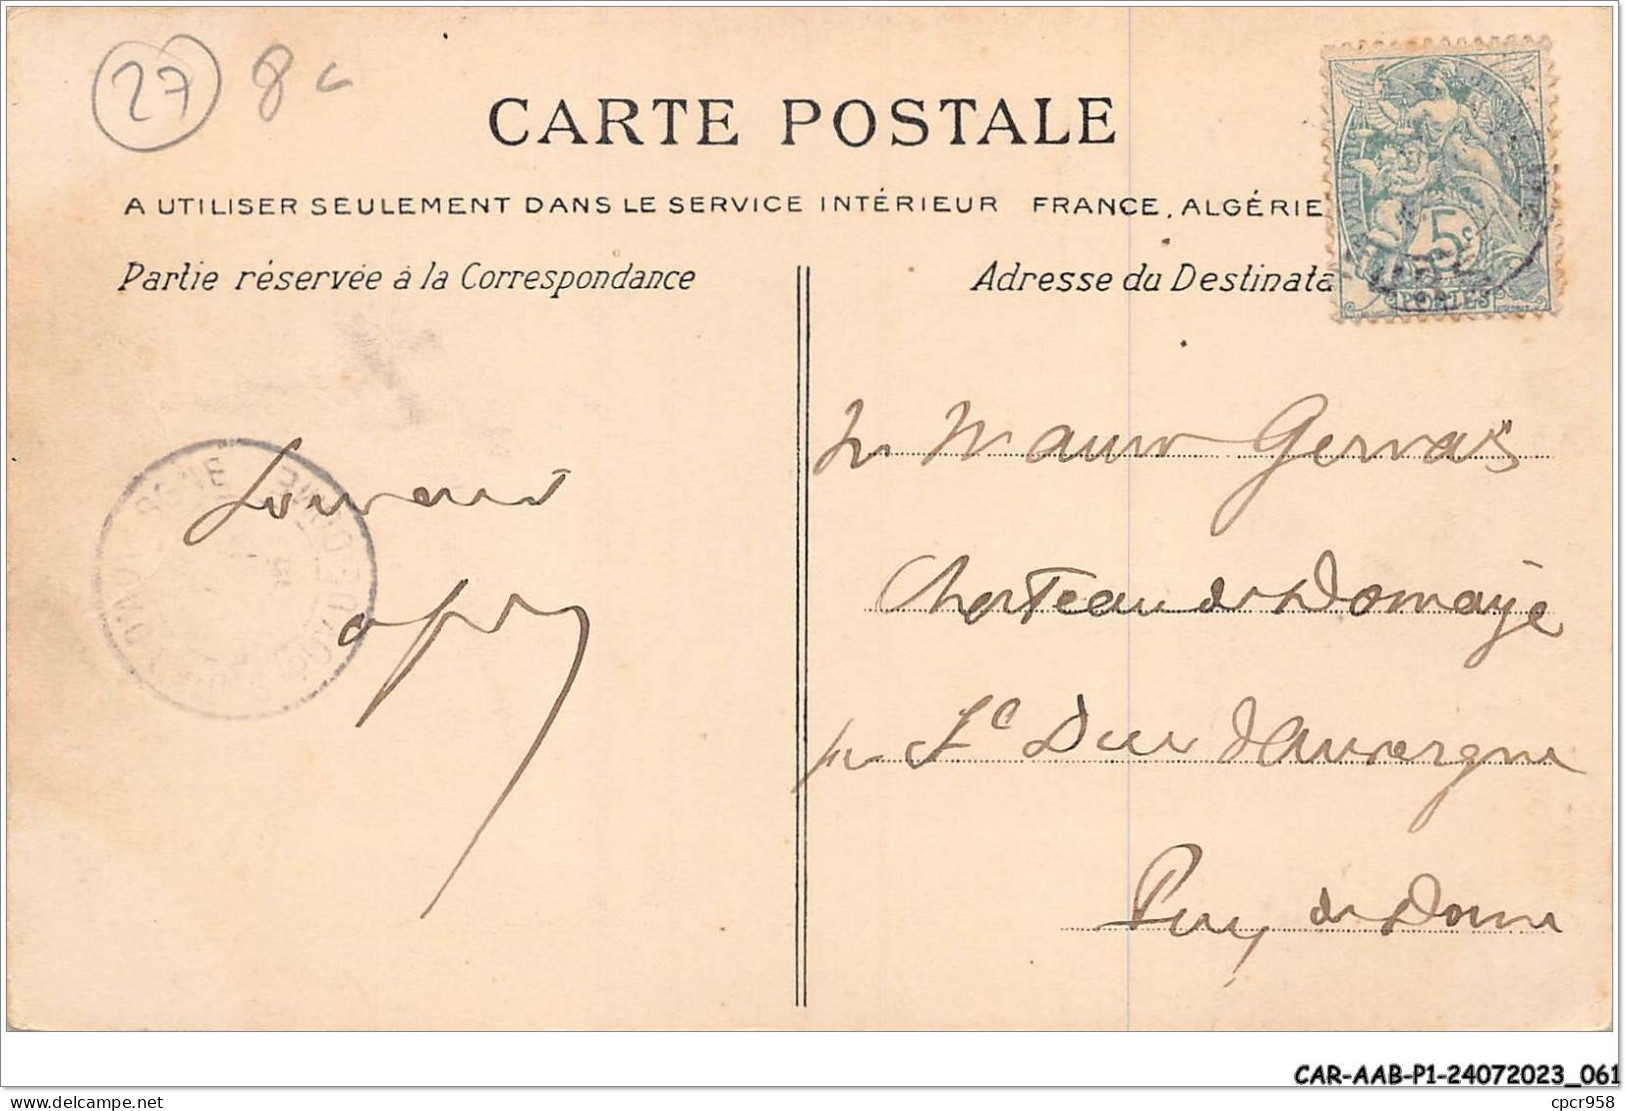 27 8
CARTE POSTALE
A UTILISER SEULEMENT DANS LE SERVICE INTÉRIEUR FRANCE, ALGÉRIE
Partie réservée à la Correspondance
Adresse du Destinata
5c
POSTES
PUY-DE-DOME
Souvenir
Gervais
Chateau de Domaye
d'Auvergne
Puy de Dome
CAR-AAB-P1-24072023_061
delcampe.net
cpcr958